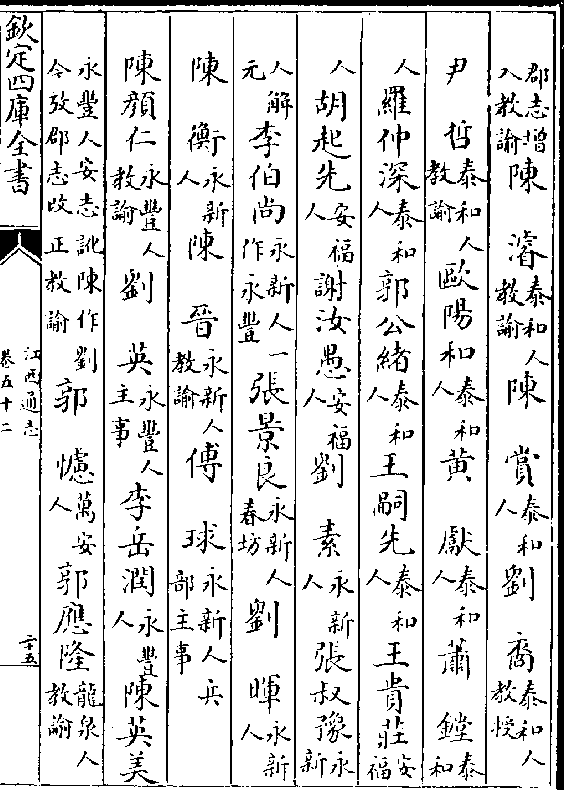 郡志增入教諭陳濬泰和人教諭陳賞泰和人劉裔泰和人教授
尹哲泰和人教諭歐陽和泰和人黃獻泰和人蕭鏜泰和
人羅仲深泰和人郭公緒泰和人王嗣先泰和人王貴莊安福
人胡起先安福人謝汝愚安福人劉素永新人張叔豫永新
人解元李伯尚永新人一作永豐張景良永新人春坊劉暉永新人
陳衡永新人陳晉永新人教諭傅球永新人兵部主事
陳顏仁永豐人教諭劉英永豐人主事李岳潤永豐人陳英美
永豐人安志訛陳作劉今攷郡志改正教諭郭憓萬安人郭應隆龍泉人教諭
欽定四庫全書
江西通志
卷五十二
二十五